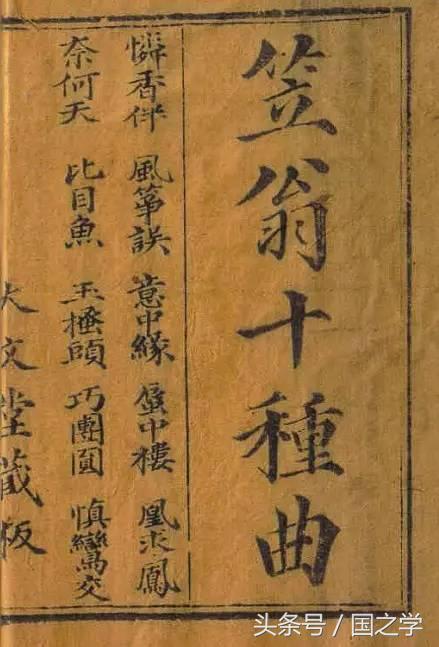 笠翁十種曲
憐香伴 風箏誤 意中緣 蜃中樓 凰求鳳
奈何天 比目魚 玉搔頭 巧團圓 慎鸞交
大文堂藏板
头条号 / 国之学